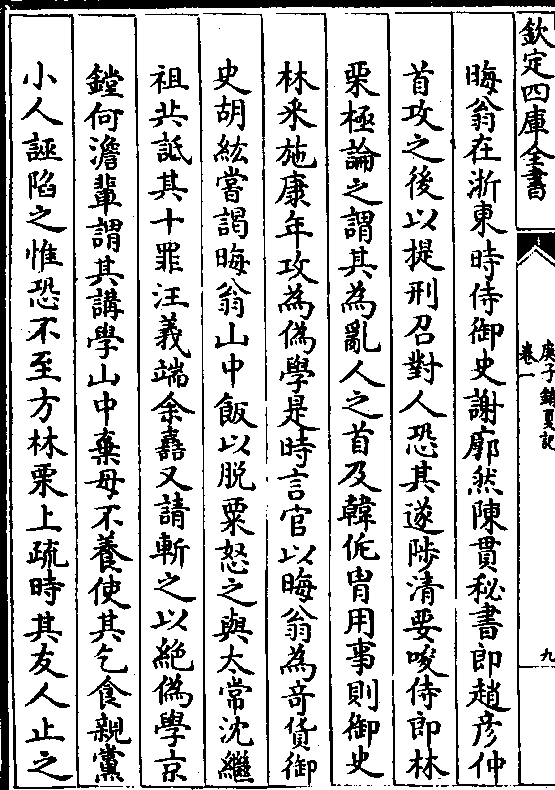 欽定四庫全書
庚子銷夏記
卷一
九
晦翁在浙東時侍御史謝廓然陳賈秘書郎趙彦仲
首攻之後以提刑召對人恐其遂陟清要唆侍郎林
栗極論之謂其為亂人之首及韓侂胄用事則御史
林釆施康年攻為偽學是時言官以晦翁為竒貨御
史胡紘嘗謁晦翁山中飯以脱粟怒之與太常沈繼
祖共詆其十罪汪義端余嚞又請斬之以絶偽學京
鏜何澹輩謂其講學山中棄母不養使其乞食親黨
小人誣陷之惟恐不至方林栗上疏時其友人止之